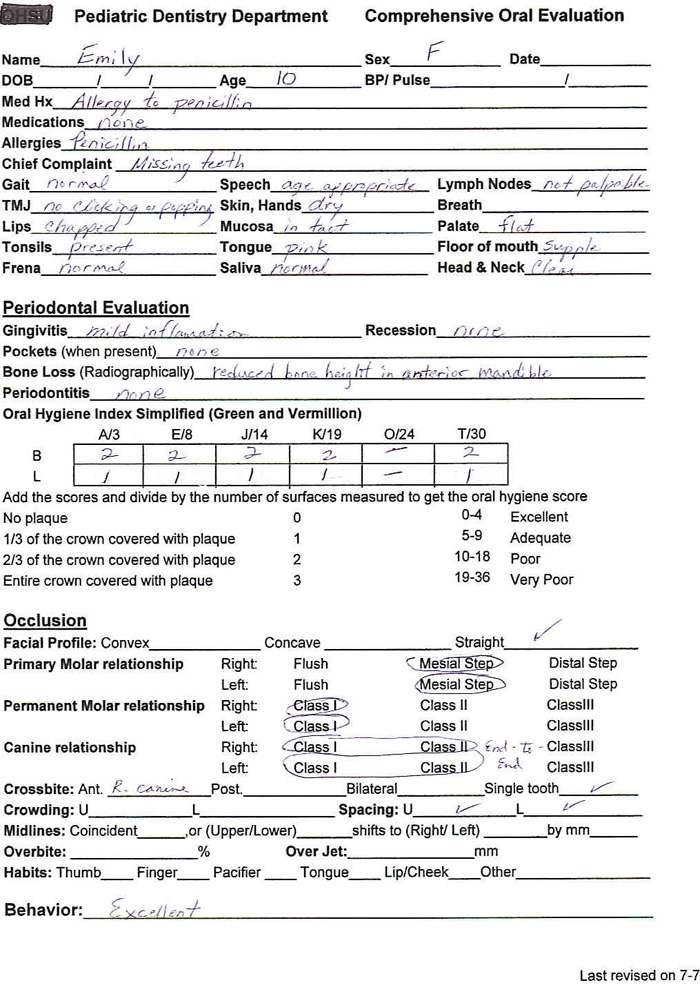 OHSU Pediatric Dentistry Department Comprehensive Oral Evaluation
Name Emily Sex F Date
DOB / / Age 10 BP/ Pulse /
Med Hx Allergy to penicillin
Medications none
Allergies Penicillin
Chief Complaint Missing teeth
Gait normal Speech age appropriate Lymph Nodes not palpable
TMJ no clicking or popping Skin, Hands dry Breath
Lips chapped Mucosa in tact Palate flat
Tonsils present Tongue pink Floor of mouth supple
Frena normal Saliva normal Head & Neck Clear
Periodontal Evaluation
Gingivitis mild inflamation Recession none
Pockets (when present) none
Bone Loss (Radiographically) reduced bone height in anterior mandible
Periodontitis none
Oral Hygiene Index Simplified (Green and Vermillion)
A/3 E/8 J/14 K/19 O/24 T/30
B 2 2 2 2 — 2
L 1 1 1 1 — 1
Add the scores and divide by the number of surfaces measured to get the oral hygiene score
No plaque 0 0-4 Excellent
1/3 of the crown covered with plaque 1 5-9 Adequate
2/3 of the crown covered with plaque 2 10-18 Poor
Entire crown covered with plaque 3 19-36 Very Poor
Occlusion
Facial Profile: Convex Concave Straight ✓
Primary Molar relationship Right: Flush Mesial Step Distal Step
Left: Flush Mesial Step Distal Step
Permanent Molar relationship Right: Class I Class II ClassIII
Left: Class I Class II ClassIII
Canine relationship Right: Class I Class II End-to- ClassIII
Left: Class I Class II End ClassIII
Crossbite: Ant. R. canine Post. Bilateral Single tooth ✓
Crowding: U L Spacing: U ✓ L ✓
Midlines: Coincident ,or (Upper/Lower) shifts to (Right/ Left) by mm
Overbite: % Over Jet: mm
Habits: Thumb Finger Pacifier Tongue Lip/Cheek Other
Behavior: Excellent
Last revised on 7-7